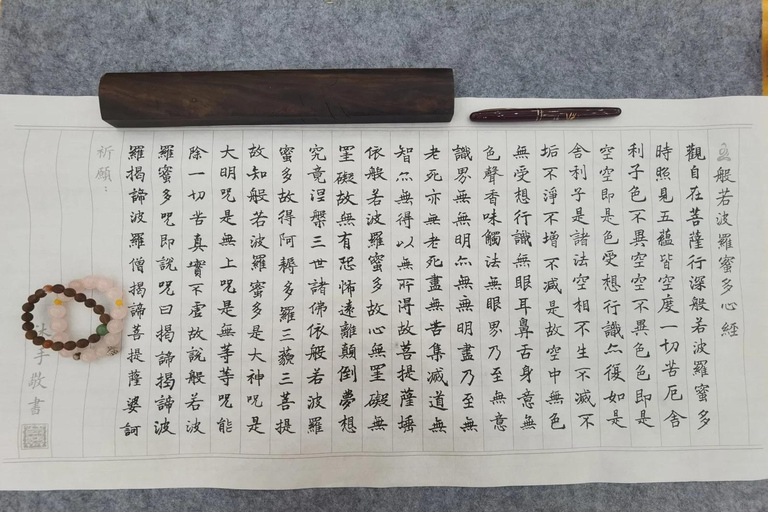 般若波羅蜜多心經
觀自在菩薩行深般若波羅蜜多
時照見五蘊皆空度一切苦厄舍
利子色不異空空不異色色即是
空空即是色受想行識亦復如是
舍利子是諸法空相不生不滅不
垢不淨不增不減是故空中無色
無受想行識無眼耳鼻舌身意無
色聲香味觸法無眼界乃至無意
識界無無明亦無無明盡乃至無
老死亦無老死盡無苦集滅道無
智亦無得以無所得故菩提薩埵
依般若波羅蜜多故心無罣礙無
罣礙故無有恐怖遠離顛倒夢想
究竟涅槃三世諸佛依般若波羅
蜜多故得阿耨多羅三藐三菩提
故知般若波羅蜜多是大神咒是
大明咒是無上咒是無等等咒能
除一切苦真實不虛故說般若波
羅蜜多咒即說咒曰揭諦揭諦波
羅揭諦波羅僧揭諦菩提薩婆訶
祈願：
沐手敬書